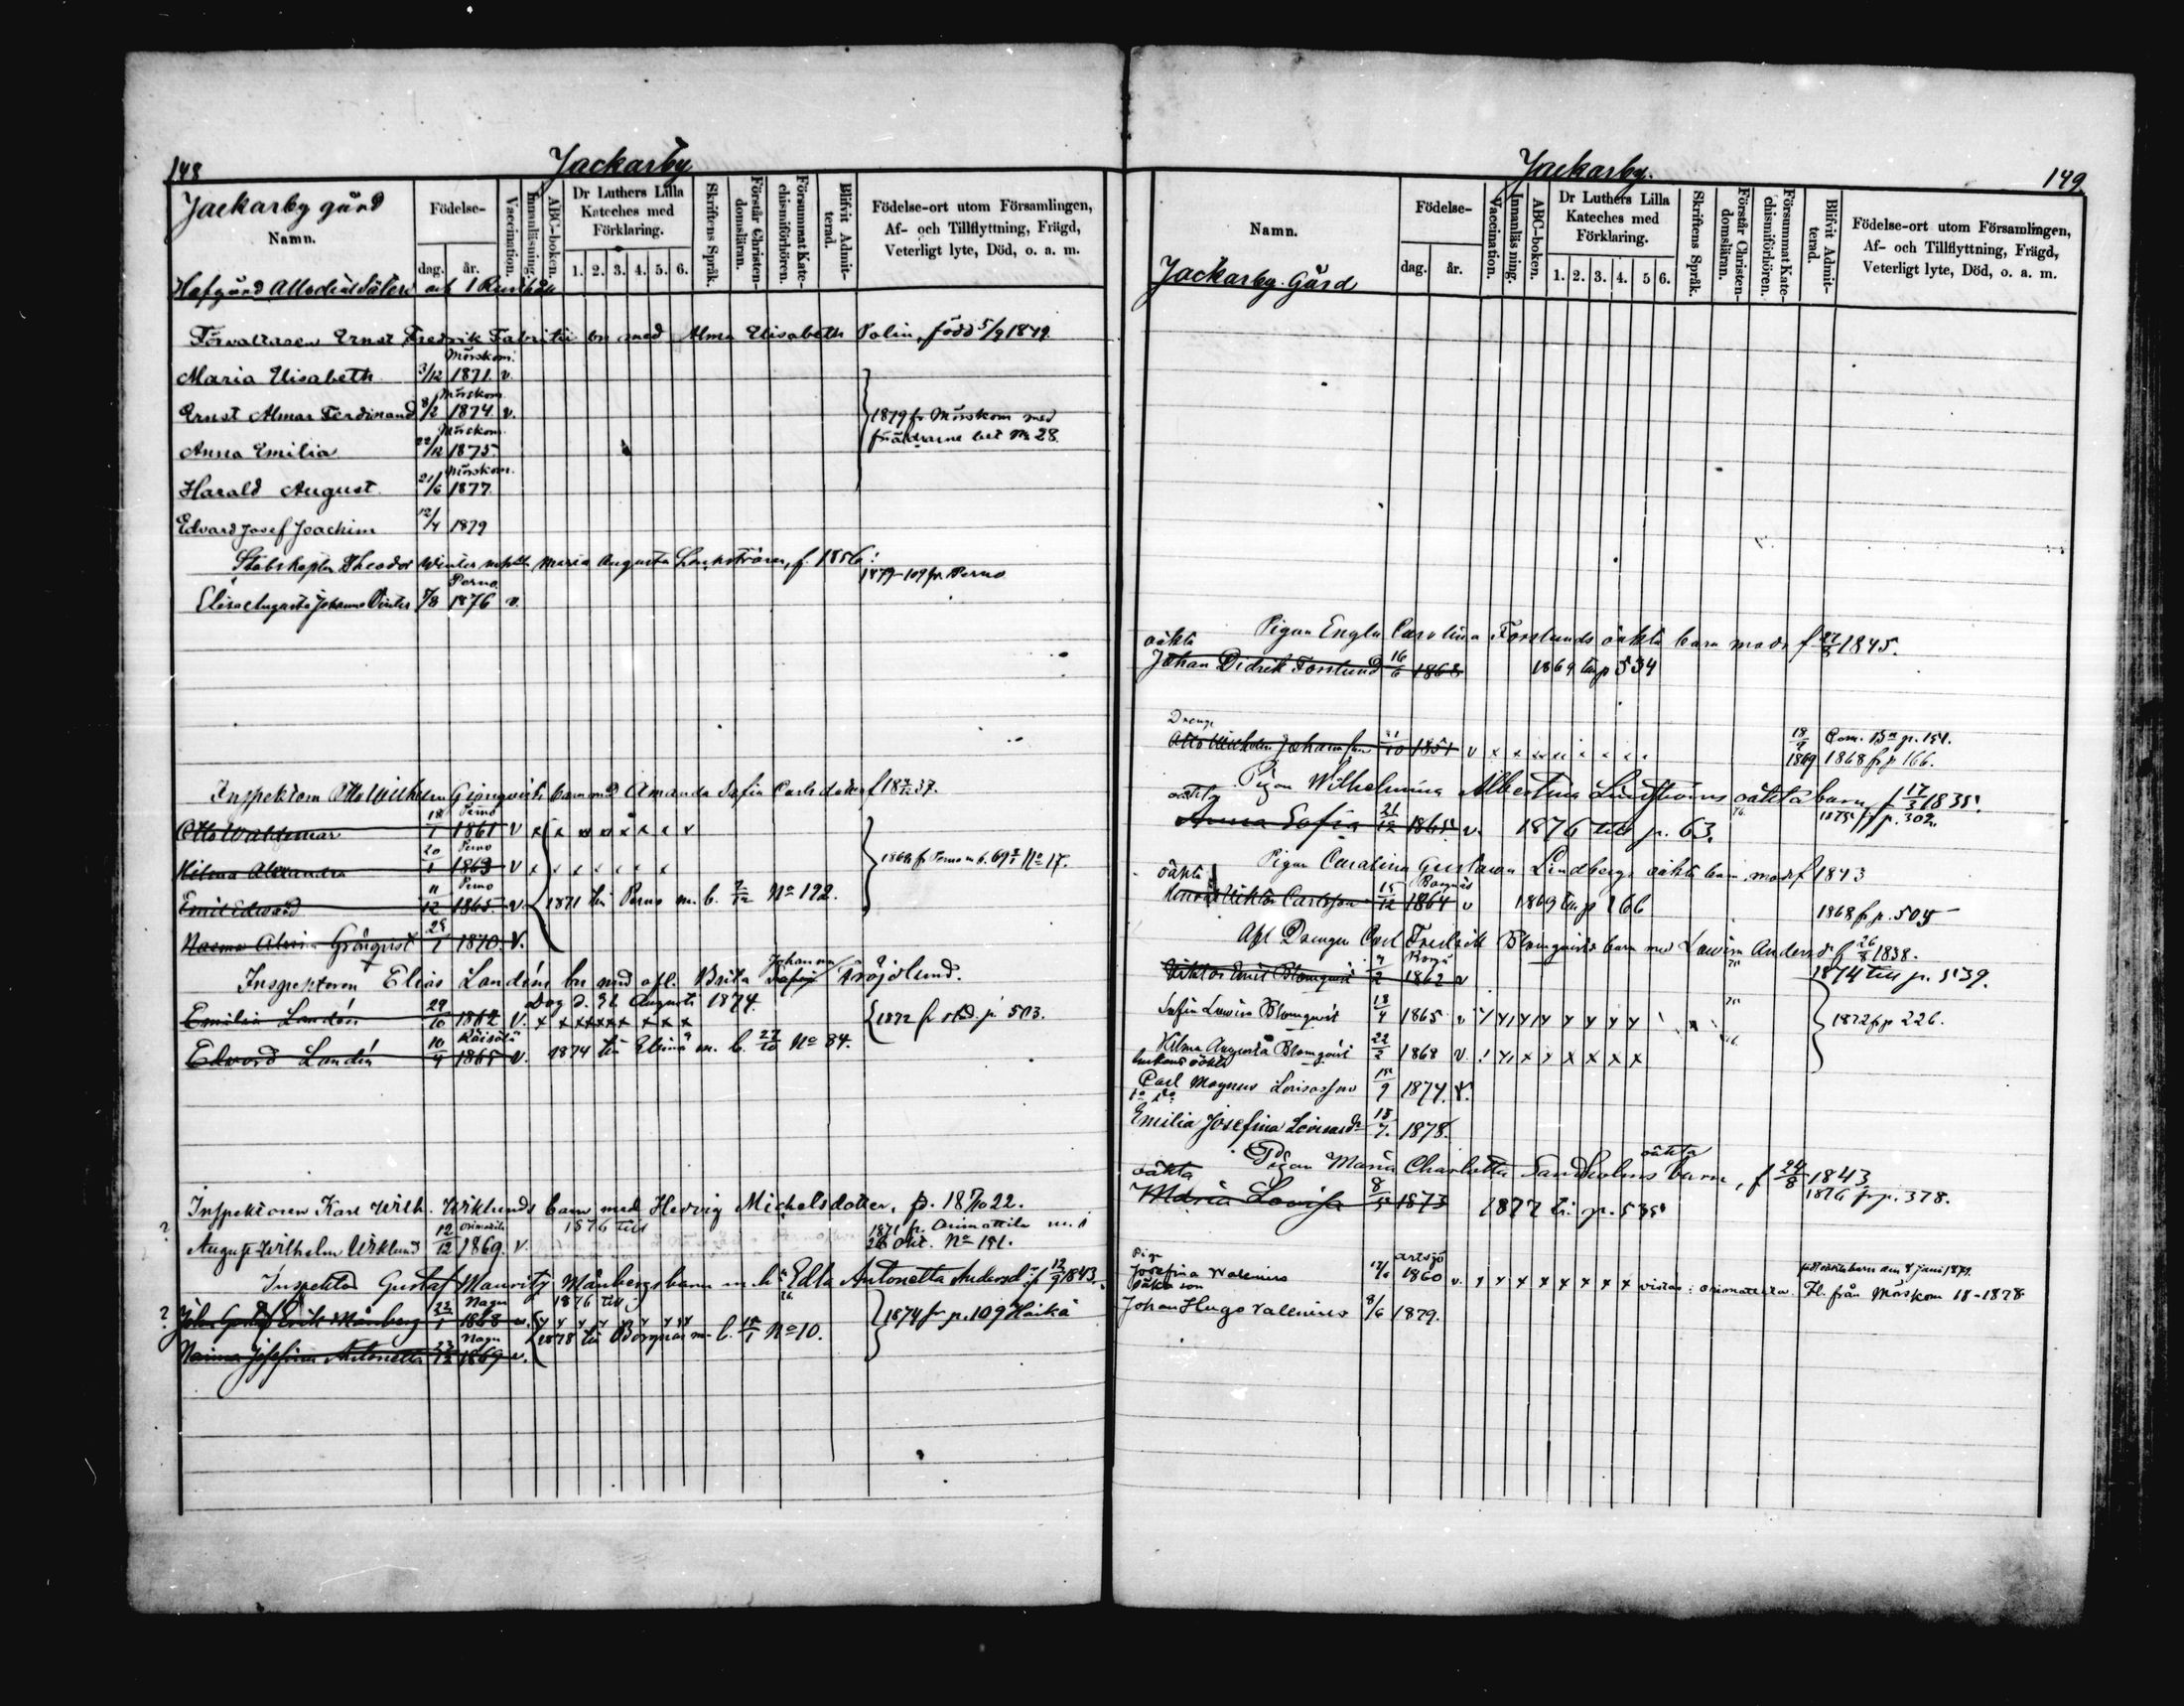 148
Jackarby
Jackarby gård
Namn.
Födelse-
dag. år.
Vaccination.
Innanläsning.
ABC-boken.
Dr Luthers Lilla
Kateches med
Förklaring.
1. 2. 3. 4. 5. 6.
Skriftens Språk.
Förstår Christen-
domsläran.
Försummat Kate-
chismiförhören.
Blifvit Admit-
terad.
Födelse-ort utom Församlingen,
Af- och Tillflyttning, Frägd,
Veterligt lyte, Död, o. a. m.
Förvaltaren Ernst Fredrik Fabritii bn med Alma Elisabeth Palin, född 5/9 1849
Mörskom.
Maria Elisabeth 3/12 1871. v.
Mörskom.
Ernst Almar Ferdinand 8/2 1874. v.
1879 fr Mörskom med
föräldrarne bet No 28.
Mörskom.
Anna Emilia 22/12 1875
Mörskom.
Harald August 21/6 1877.
Edvard Josef Joachim 12/4 1879
Theodor Winter Maria Augusta f. 1856:
1879-109 fr Perno
Perno
1876 v.
Inspektorn Otto Wilhelm barn med Amanda Sofia Carlsdotter f 18 37.
Perno
Otto Waldemar 18/1 1861 v x x x x x x x v
Perno
Hilma Alexandra 20/1 1863 v x x x x x x
1868 fr Perno No 17.
Perno
Emil Edvard 11/12 1865. v. 1871 till Perno m. b. 2/12 No 122.
Naema Grönqvist 1870. v.
Inspektoren Elias Landéns bn med afl. Brita Johanna Sofia Fröjdlund.
Dog d. 31 Augusti 1874.
Emilia Landén 29/10 1862 v. x x x x x x x x x
1872 fr std. p. 503.
Edvard Landén 10/4 1865 v. 1874 till Elimä m. b. 27/10 No 84.
Inspektoren Karl Wilh. Wiklunds barn med Hedvig Michelsdotter, f. 18 22.
1876 till
1871 fr. Orimattila m. b
?
August Wilhelm Wiklund 12/12 1869. v.
26 Okt. No 151.
Inspektor Gustaf Mauritz Månbergs barn m. h. Edla Antonetta Andersdr f 12/9 1843.
1876 till
?
John Gustaf Erik Månberg 1868 v.
1874 fr p. 109 Haikå
1878 till Borgnäs m. b. No 10.
Naima Josefina Antonetta 1869 v.
149
Jackarby.
Namn.
Jackarby Gård
Födelse-
dag. år.
Vaccination.
Innanläsning.
ABC-boken.
Dr Luthers Lilla
Kateches med
Förklaring.
1. 2. 3. 4. 5 6.
Skriftens Språk.
Förstår Christen-
domsläran.
Försummat Kate-
chismiförhören.
Blifvit Admit-
terad.
Födelse-ort utom Församlingen,
Af- och Tillflyttning, Frägd,
Veterligt lyte, Död, o. a. m.
Pigan Engla Carolina Forslunds oäkta barn moder f 1845.
oäkta
Johan Didrik Forslund 16/6 1868 1869 till p 534
Dreng
Otto Wilhelm Johansson 1851 v
18/9 1869
1868 fr p 166.
Pigan Wilhelmina Albertina Lindströms oäkta barn f 17/3 1835.
oäkta
Anna Sofia 21/12 1865 v. 1876 till p. 63.
1875 fr p. 302.
Pigan Carolina Gustava Lindbergs oäkta barn mod f 1843
oäkta
Borgnäs
Viktor Carlsson 15/12 1864 v 1869 till p 166
1868 fr p. 505
Afl Drengen Carl Fredrik Blomqvists barn med Lovisa Andersdr f 26/8 1838.
Viktor Emil Blomqvist 1862 v
1874 till p. 539.
Sofia Lovisa Blomqvist 18/4 1865 v
1872 fr p 226.
Hilma Augusta Blomqvist 22/2 1868 v.
Carl Magnus Lovisasson 15/9 1874. v.
Emilia Josefina Lovisadr 18/7. 1878.
Pigan Maria Charlotta Sandholms oäkta barn, f 24/8 1843
oäkta
Maria Lovisa 8/5 1873 1877 till p. 535
1876 fr p. 378.
Piga
Artsjö
Josefina Valenius 1860 v. x x x x x x x x vistas i Orimattila.
fött oäkta barn den 8 juni 1879.
Fl. från Mörskom 18-1878
oäkta son
Johan Hugo Valenius 8/6 1879.